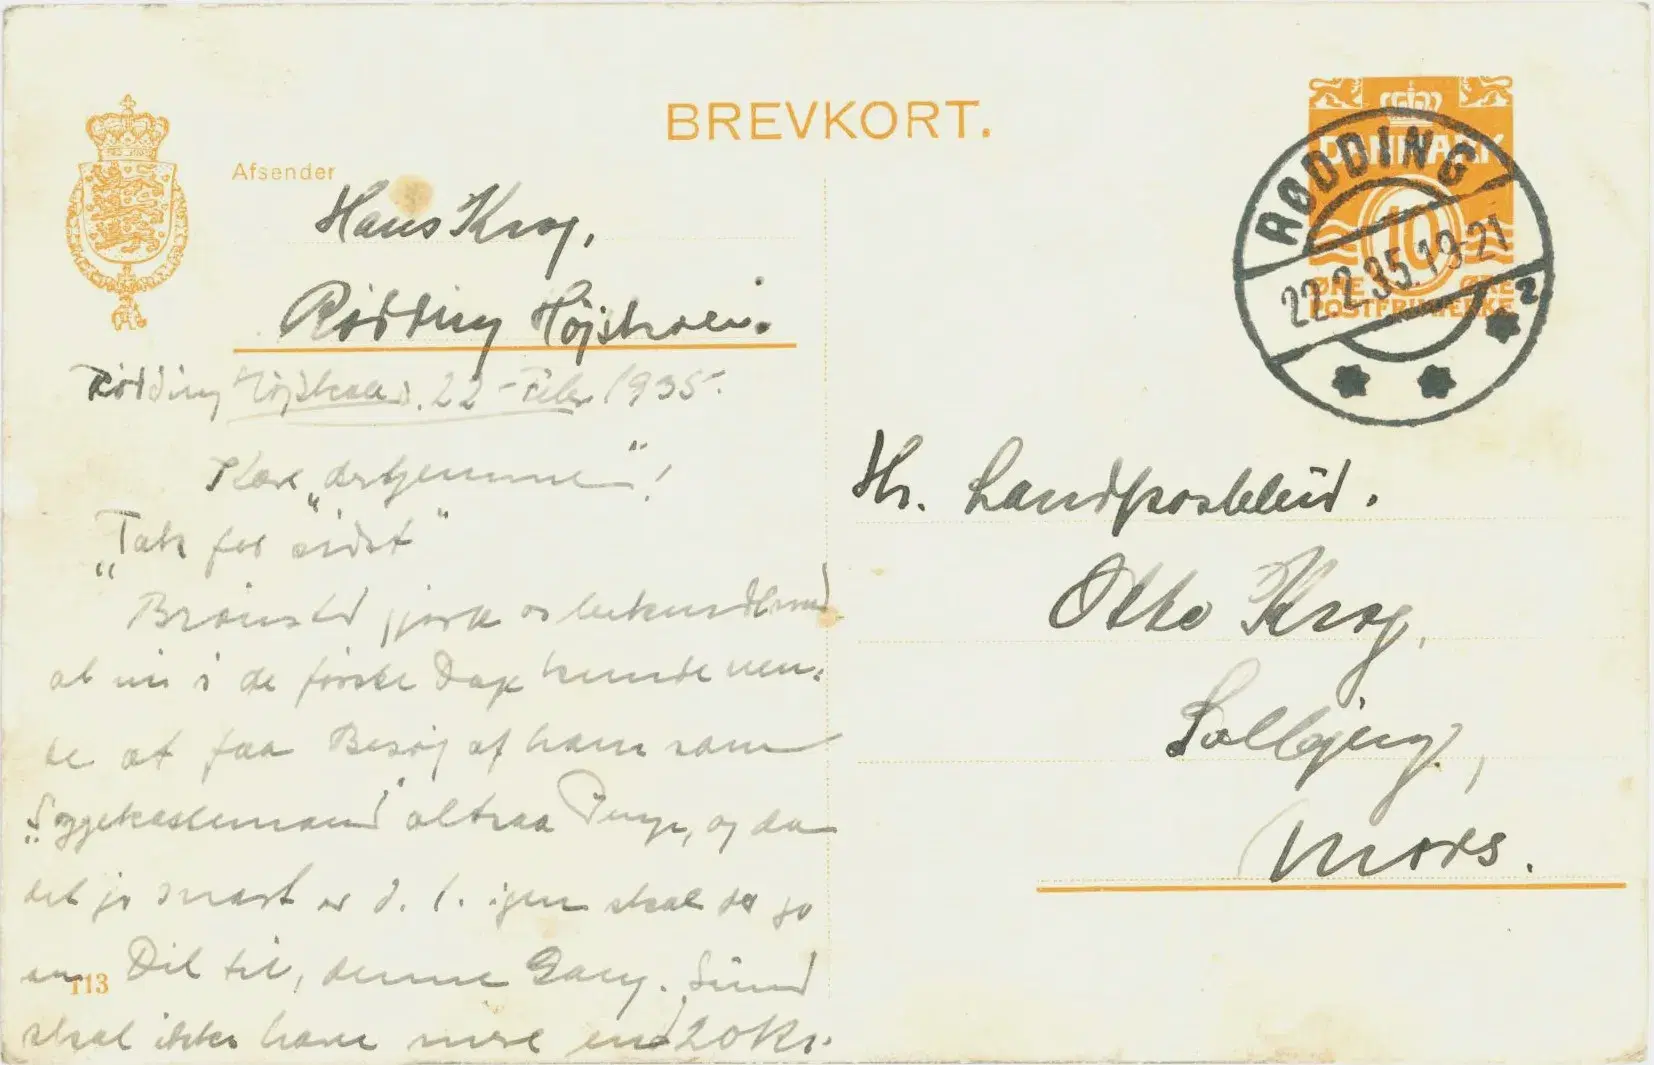 BREVKORT.
Afsender
Hans Krog,
Rødding Højskole.
Rødding Højskole d. 22-Febr 1935.
Kære „derhjemme"!
„Tak for sidst"
Brønsted gjorde os bekendt med
at vi i de første Dage kunde ven-
te at faa Besøg af ham som
„Syge­kassemand" altsaa Penge, og da
det jo snart er d. 1. igen skal der jo
en Del til, denne Gang. Svend
skal ikke have mere end 20 Kr.
113
DANMARK
10
ØRE ØRE
POSTFRIMÆRKE
RØDDING
22.2.35.19-21
2
Hr. Landpostbud.
Otto Krog,
Solbjerg,
Mors.